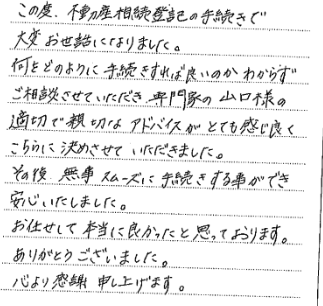 この度、不動産相続登記の手続きで
大変お世話になりました。
何をどのように手続きすれば良いのかわからず
ご相談させていただき専門家の山口様の
適切で親切なアドバイスがとても感じ良く
こちらに決めさせていただきました。
その後無事スムーズに手続きする事ができ
安心いたしました。
お任せして本当に良かったと思っております。
ありがとうございました。
心より感謝申し上げます。